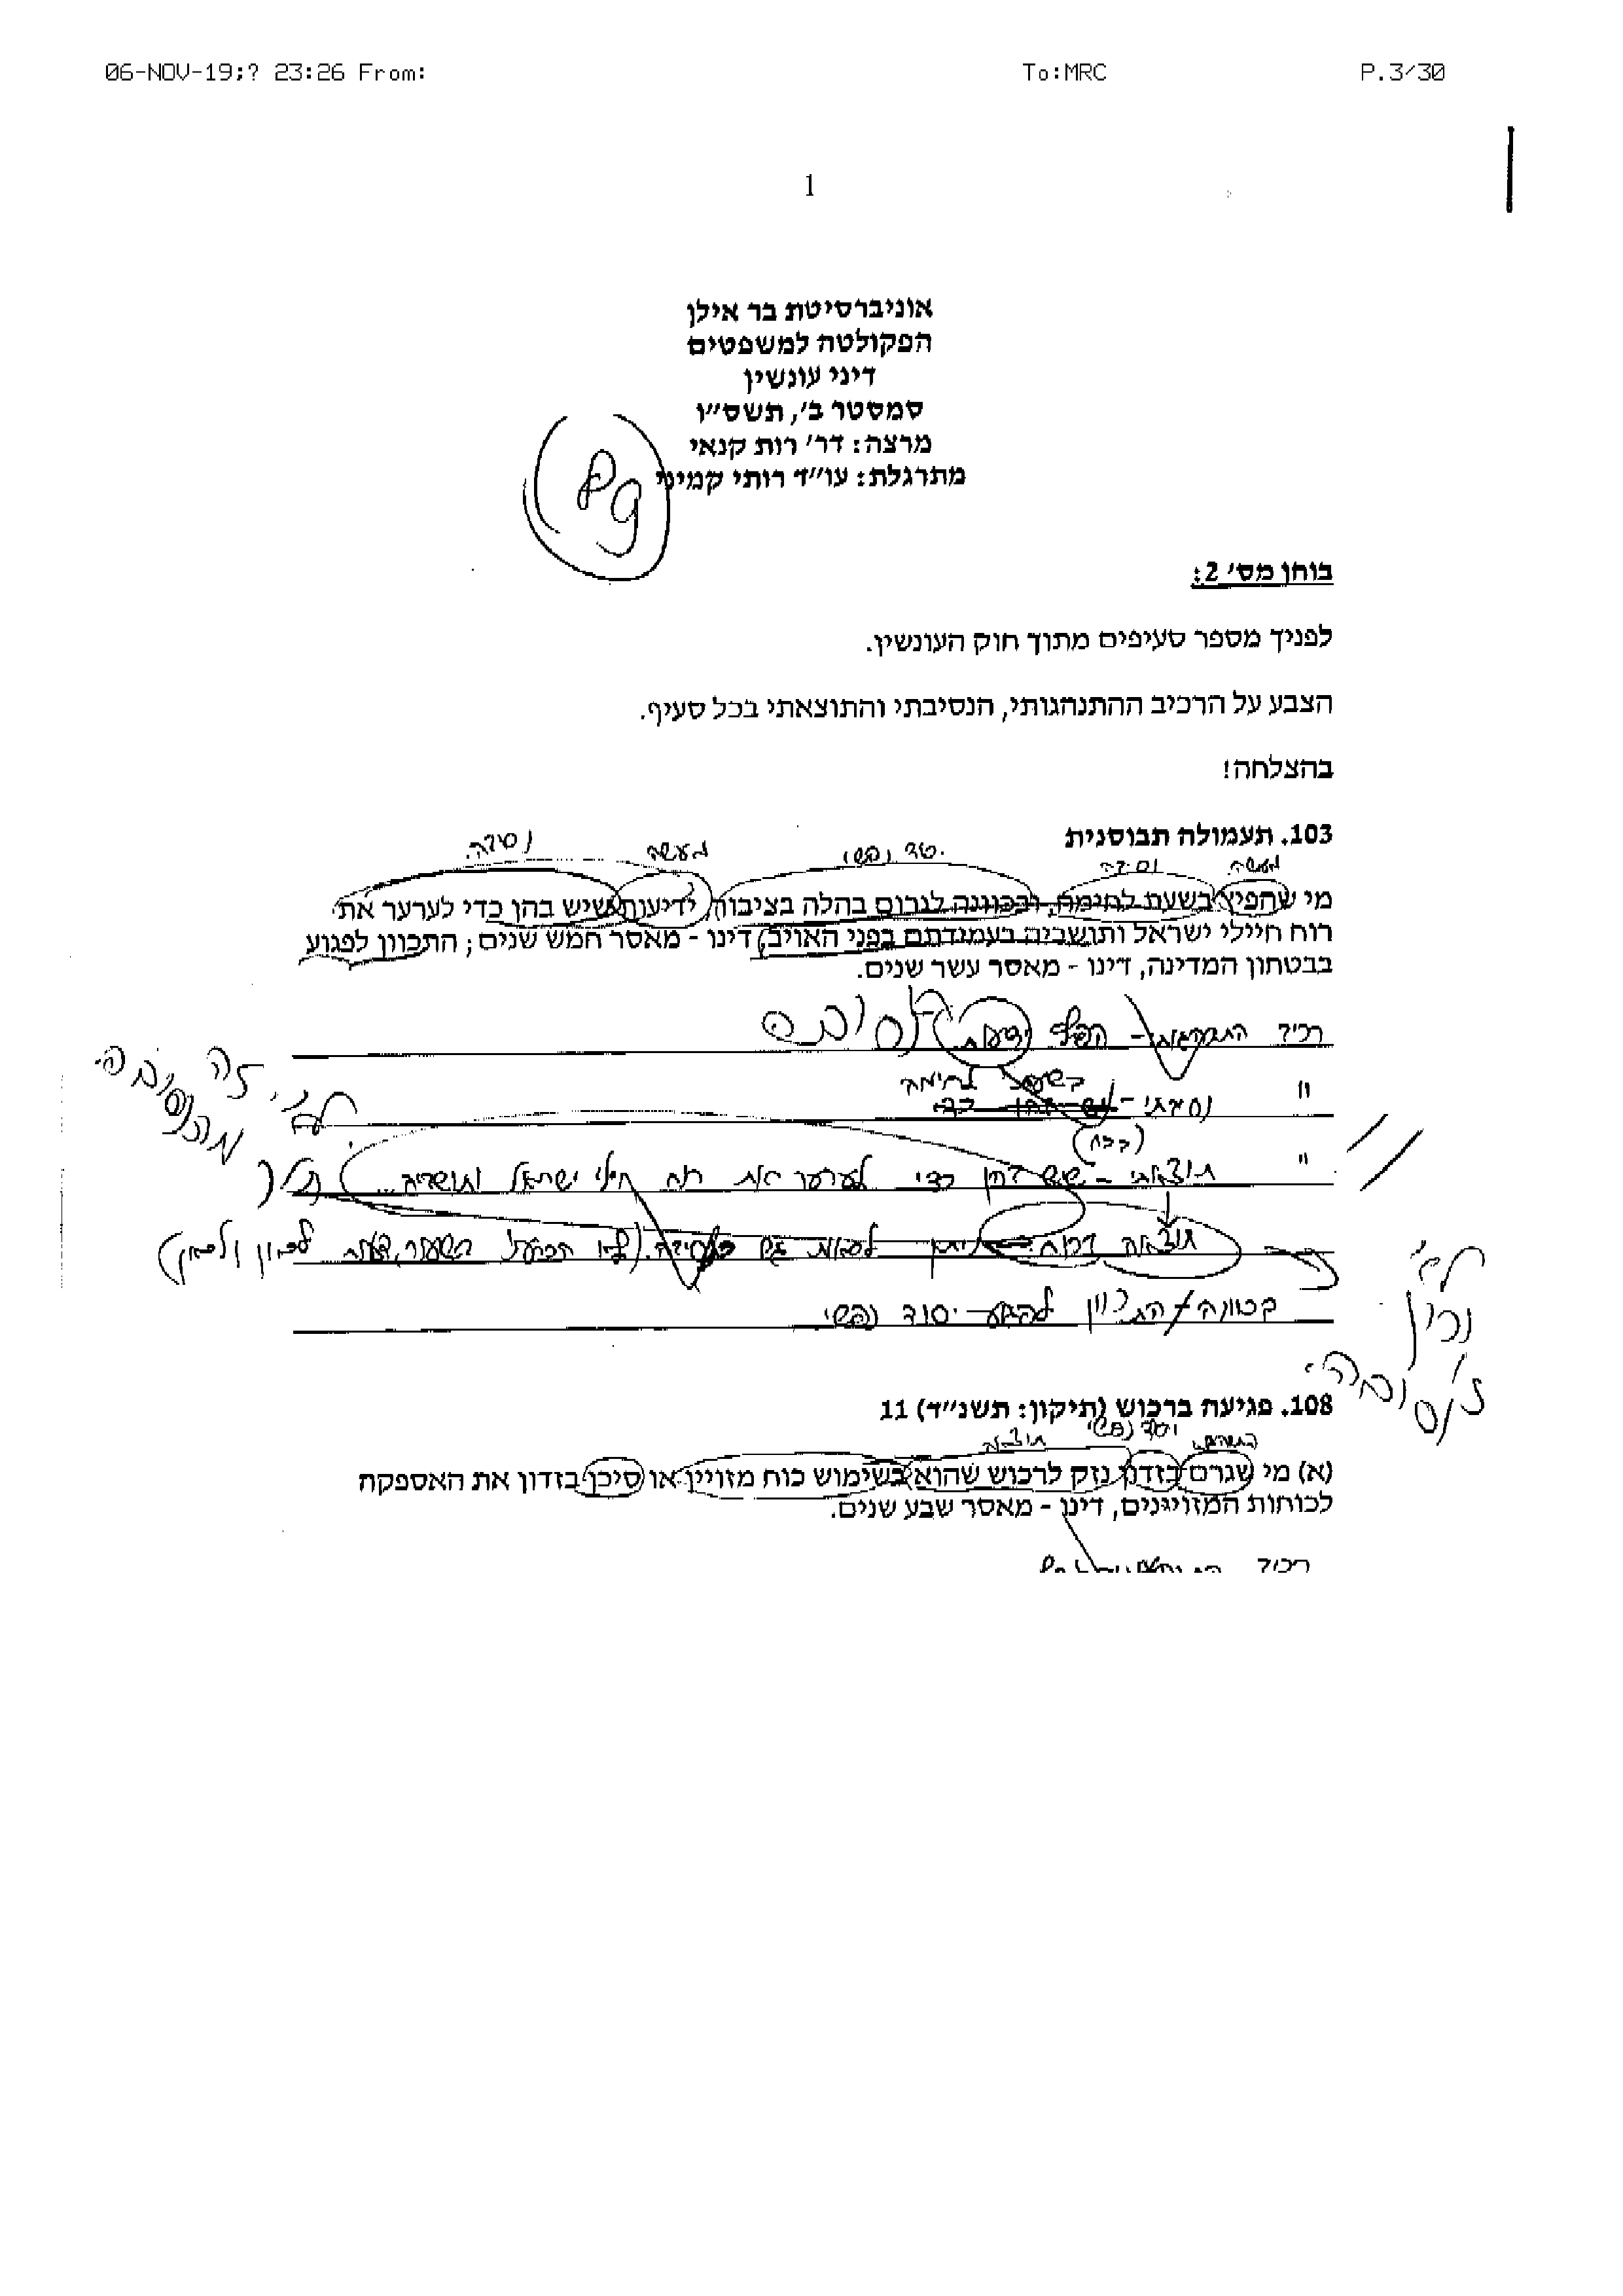 06-NOV-19;? 23:26 From: To:MRC P.3/30
1
אוניברסיטת בר אילן
הפקולטה למשפטים
דיני עונשין
סמסטר ב', תשס"ו
מרצה: דר' רות קנאי
מתרגלת: עו"ד רותי קמיני
בוחן מס' 2:
לפניך מספר סעיפים מתוך חוק העונשין.
הצבע על הרכיב ההתנהגותי, הנסיבתי והתוצאתי בכל סעיף.
בהצלחה!
103. תעמולה תבוסנית
מעשה נסיבה יסוד נפשי מעשה נסיבה
מי שהפיץ בשעת לחימה, ובכוונה לגרום בהלה בציבור, ידיעות שיש בהן כדי לערער את
רוח חיילי ישראל ותושביה בעמידתם בפני האויב, דינו - מאסר חמש שנים; התכוון לפגוע
בבטחון המדינה, דינו - מאסר עשר שנים.
רכיב התנהגותי - הפיץ ידיעות נסיבה
" נסיבתי - בשעת לחימה
" תוצאתי - שיש בהן כדי לערער את רוח חיילי ישראל ותושביה...
בכוונה/התכוון לפגוע - יסוד נפשי
108. פגיעה ברכוש (תיקון: תשנ"ד) 11
יסוד נפשי תוצאה
(א) מי שגרם בזדון נזק לרכוש שהוא בשימוש כוח מזויין או סיכן בזדון את האספקה
לכוחות המזויינים, דינו - מאסר שבע שנים.
רכיב